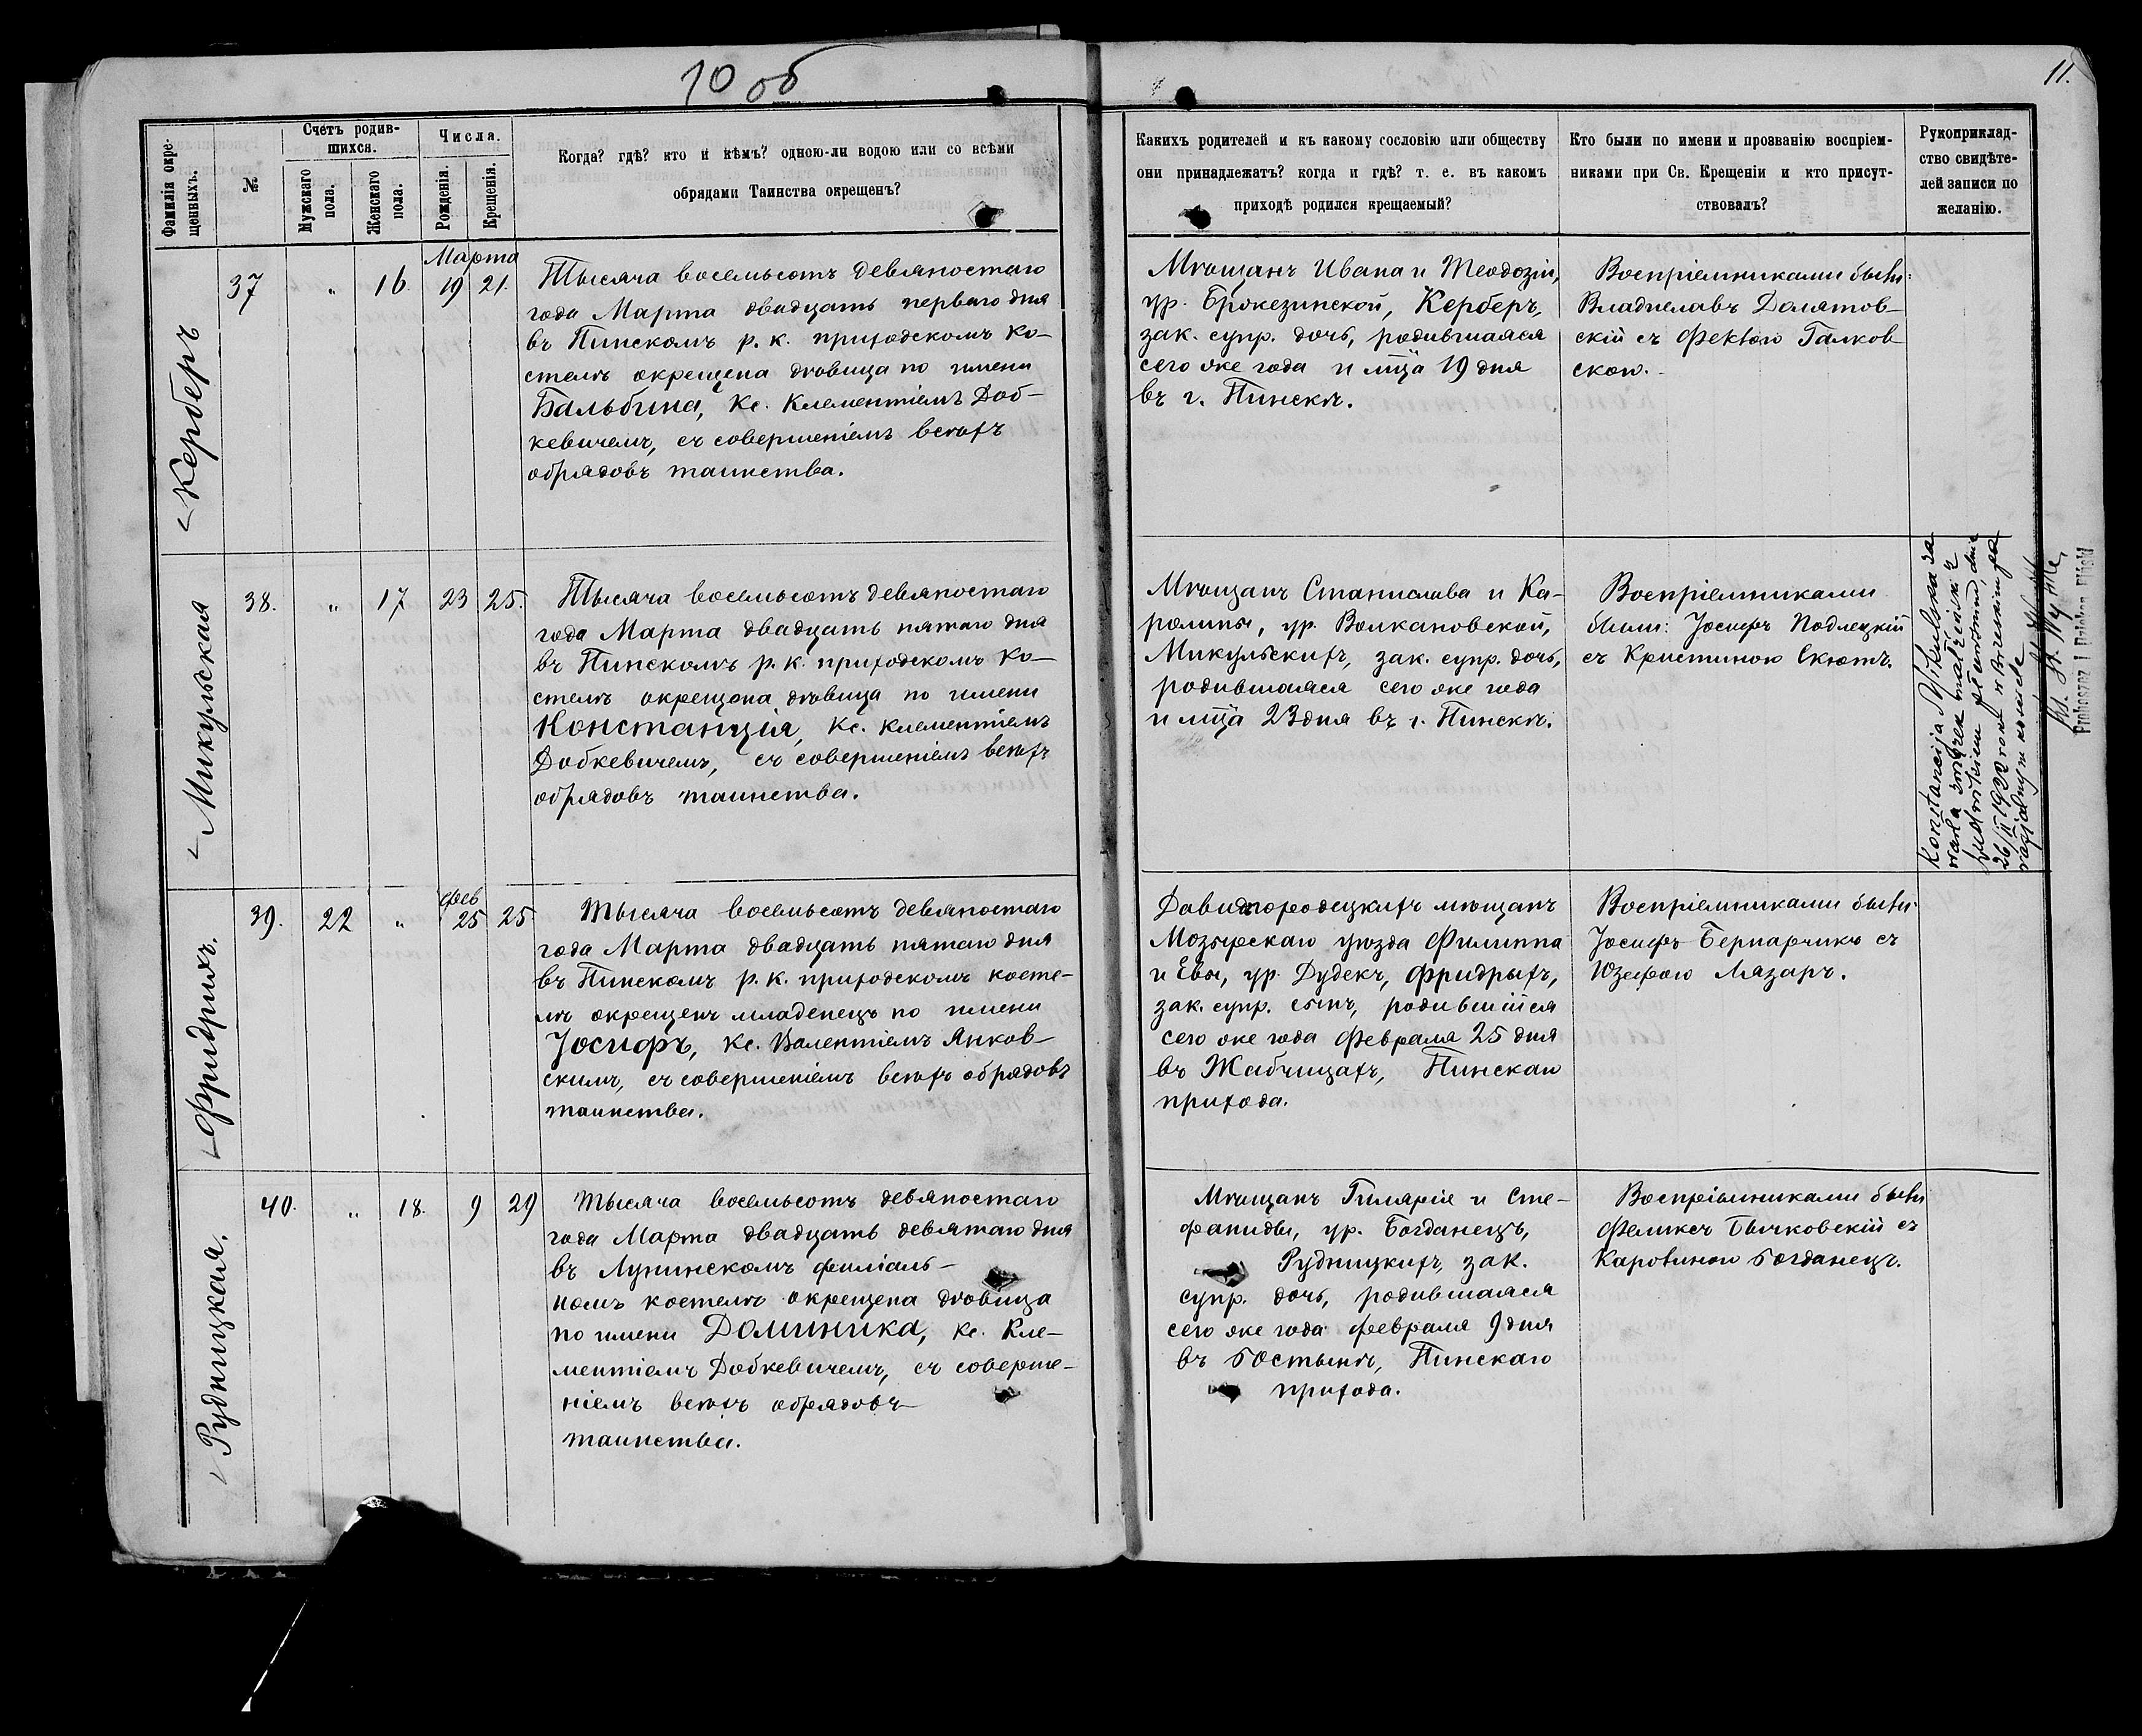 10 об
11.
Фамилія окре-
щенныхъ.
№
Счетъ родив-
шихся.
Мужскаго
пола.
Женскаго
пола.
Числа.
Рожденія.
Крещенія.
Когда? гдѣ? кто и кѣмъ? одною-ли водою или со всѣми
обрядами Таинства окрещенъ?
Какихъ родителей и къ какому сословію или обществу
они принадлежатъ? когда и гдѣ? т. е. въ какомъ
приходѣ родился крещаемый?
Кто были по имени и прозванію воспріем-
никами при Св. Крещеніи и кто присут-
ствовалъ?
Рукоприклад-
ство свидѣте-
лей записи по
желанію.
Керберъ
37
"
16.
Марта
19 21.
Тысяча восемьсотъ девяностаго
года Марта двадцать перваго дня
въ Пинскомъ р. к. приходскомъ ко-
стелѣ окрещена дѣвица по имени
Бальбина, Кс. Клементіемъ Доб-
кевичемъ, съ совершеніемъ всѣхъ
обрядовъ таинства.
Мѣщанъ Ивана и Теодозіи,
ур. Брокезинской, Керберъ,
зак. супр. дочь, родившаяся
сего же года и мца 19 дня
въ г. Пинскѣ.
Воспріемниками были:
Владиславъ Долятов-
скій съ Феклою Галков-
скою.
Микульская
38.
"
17
23 25.
Тысяча восемьсотъ девяностаго
года Марта двадцать пятаго дня
въ Пинскомъ р. к. приходскомъ ко-
стелѣ окрещена дѣвица по имени
Констанція, Кс. Клементіемъ
Добкевичемъ, съ совершеніемъ всѣхъ
обрядовъ таинства.
Мѣщанъ Станислава и Ка-
ролины, ур. Волкановской,
Микульскихъ, зак. супр. дочь,
родившаяся сего же года
и мца 23 дня въ г. Пинскѣ.
Воспріемниками
были: Іосифъ Подлецкій
съ Кристиною Скютъ.
Konstancija Mikulska za
warła związek małżeński z
26/II 1922 roku w
kościele
Proboszcz i Dziekan Piński
Фридрихъ.
39.
22
"
фев
25 25
Тысяча восемьсотъ девяностаго
года Марта двадцать пятаго дня
въ Пинскомъ р. к. приходскомъ косте-
лѣ окрещенъ младенецъ по имени
Іосифъ, Кс. Валентіемъ Янков-
скимъ, съ совершеніемъ всѣхъ обрядовъ
таинства.
Давидгородецкихъ мѣщанъ
Мозырскаго уѣзда Филиппа
и Евы, ур. Дудекъ, Фридрыхъ,
зак. супр. сынъ, родившійся
сего же года Февраля 25 дня
въ Жабчицахъ, Пинскаго
прихода.
Воспріемниками были:
Іосифъ Бернарчикъ съ
Юзефою Лязаръ.
Рудницкая.
40.
"
18.
9 29
Тысяча восемьсотъ девяностаго
года Марта двадцать девятаго дня
въ Лунинскомъ филіаль-
номъ костелѣ окрещена дѣвица
по имени Доминика, Кс. Кле-
ментіемъ Добкевичемъ, съ соверше-
ніемъ всѣхъ обрядовъ
таинства.
Мѣщанъ Гилярія и Сте-
фаниды, ур. Богданецъ,
Рудницкихъ, зак.
супр. дочь, родившаяся
сего же года февраля 9 дня
въ Бостынѣ, Пинскаго
прихода.
Воспріемниками были
Феликсъ Бычковскій съ
Каролиною Богданецъ.